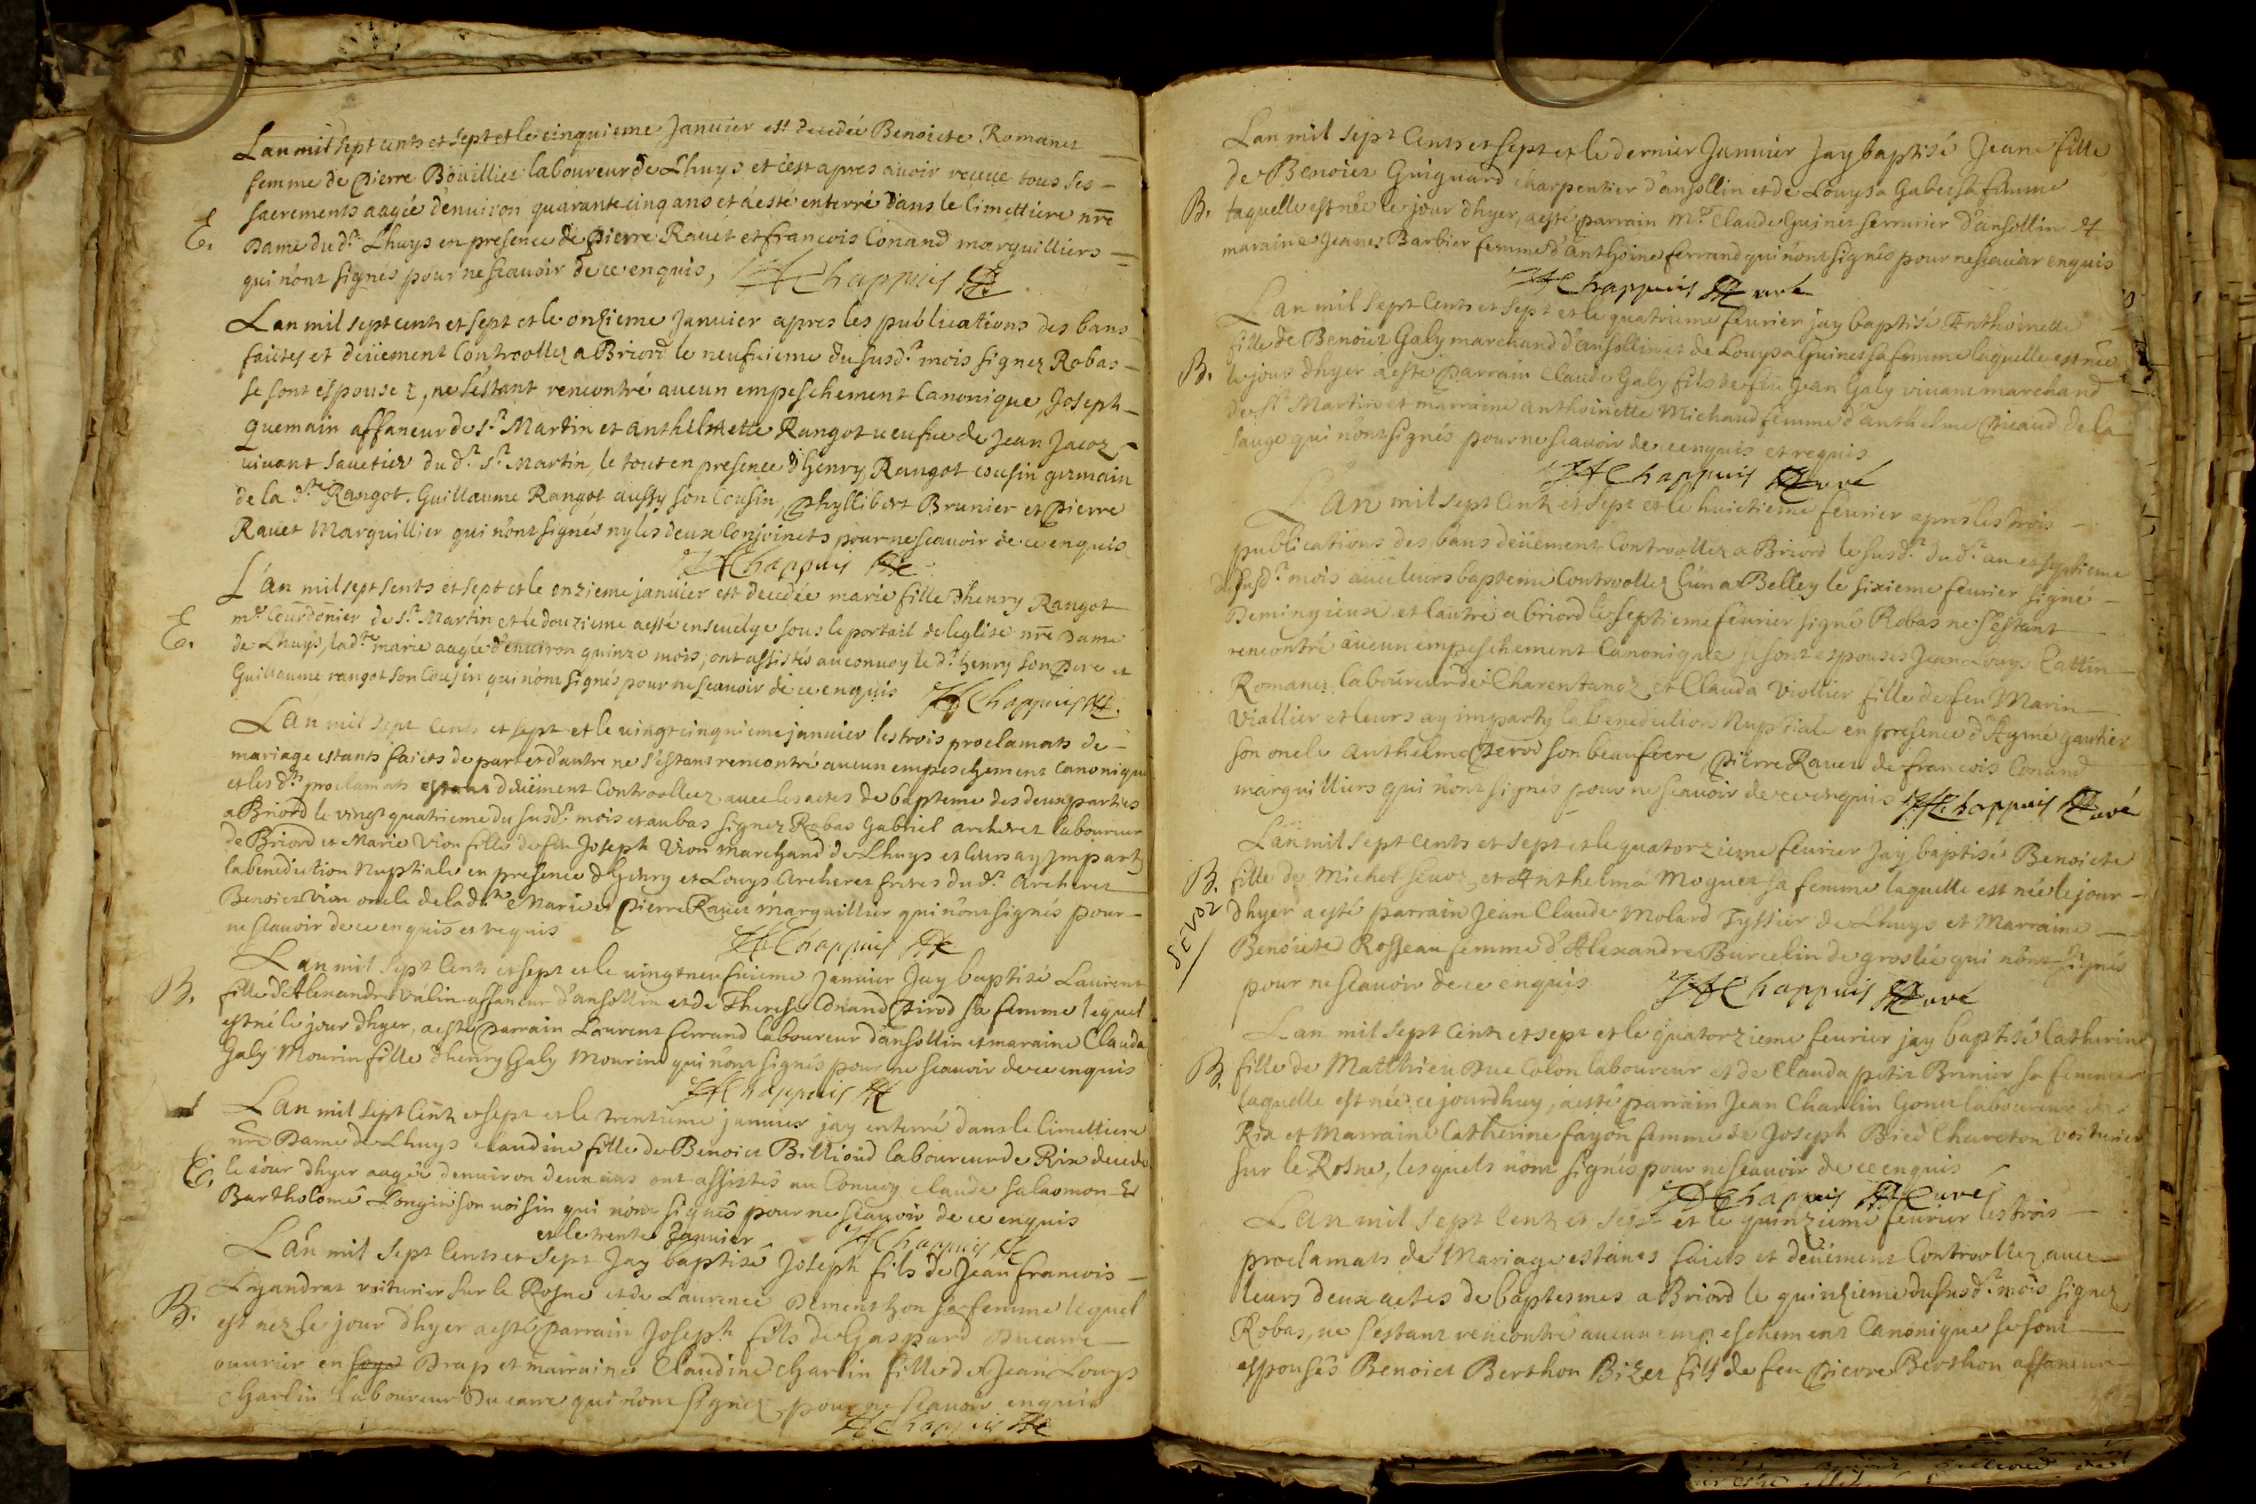 Lan mil sept cents et sept et le cinquieme Januier est decedée Benoiete Romanet
femme de Pierre Bouillier laboureur de Lhuys et c'est apres auoir receue tous ses
sacrements aagée denuiron quarante cinq ans et a esté enterré dans le Cimettiere nre
E. Dame du d.t Lhuys en presence de Pierre Rauet et francois Conand marguilliers
qui nont signés pour ne scauoir de ce enquis, Chappuis
Lan mil sept cents et sept et le onzieme Januier apres les publications des bans
faites et deüement Controollez a Briord le neufuieme du susd.t mois signez Robas
se sont espousez, ne s'estant rencontré aucun empeschement Canonique Joseph
quemain affaneur de S.t Martin et anthelmette Rangot ueufue de Jean Jacoz
viuant sauetier du d.t S.t Martin, le tout en presence d'henry Rangot cousin germain
de la d.te Rangot, Guillaume Rangot aussy son Cousin, Phyllibert Brunier et Pierre
Rauet Marguillier qui nont signés ny les deux Conjoincts pour ne scauoir de ce enquis
Chappuis
L'an mil sept sents et sept et le onzieme januier est decedée marie fille d'henry Rangot
m.e Courdonier de S.t Martin et le douzieme a esté enseuelye sous le portail de leglise nre Dame
E. de Lhuys, lad.te marie aagée d'enuiron quinze mois, ont assistés au conuoy le d.t henry son Pere et
Guillaume rangot son Cousin qui nont signés pour ne scauoir de ce enquis Chappuis
Lan mil sept cents et sept et le uingt cinquieme januier les trois proclamats de
mariage estants faicts de part et d'autre ne s'estant rencontré aucun empeschement canonique
et les d.ts proclamats deüement Controollez auec les actes de bapteme des deux parties
a Briord le vingt quatrieme du susd.t mois et au bas signez Robas Gabriel archeret laboureur
de Briord et Marie Vion fille de feu Joseph Vion marchand de Lhuys et leurs ay Imparty
la benediction Nuptiale en presence d'henry et Louys Archeret freres du d.t Archeret
Benoiet Vion oncle de la d.te Marie et Pierre Rauet marguillier qui nont signés pour
ne scauoir de ce enquis et requis Chappuis
Lan mil sept Cents et sept et le uingt neufuieme Januier Jay baptisé Laurent
B. fils d'Alexandre Valin affaneur d'ansollin et de Therese Conand Pirod sa femme lequel
est né le jour dhyer, a esté Parrain Laurent ferrand laboureur d'ansollin et maraine Clauda
Galy Mourin fille d'henry Galy Mourin qui nont signés pour ne scauoir de ce enquis
Chappuis
Lan mil sept Cents et sept et le trentieme januier jay enterré dans le Cimettiere
nre Dame de Lhuys claudine fille de Benoiet Billioud laboureur de Rix decede
E. le jour dhyer aagée denuiron deux ans ont assistés au Conuoy claude salaomon et
Bartholomé Longin son uoisin qui nont signés pour ne scauoir de ce enquis
et le trente Januier Chappuis
Lan mil sept Cents et sept Jay baptisé Joseph fils de Jean francois
Lyandrat voiturier sur le Rosne et de Laurence Dementhon sa femme lequel
B. est nez le jour dhyer a esté Parrain Joseph fils de Gaspard Ducarre
ouurier en Drap et marraine Claudine charlin fille de Jean Louys
Charlin laboureur Ducarre qui nont signez pour ne scauoir enquis
Chappuis
Lan mil sept Cents et sept et le dernier Januier Jay baptisé Jeane fille
de Benoiet Guiguard charpentier d'ansollin et de Louysa Gabet sa femme
B. laquelle est née le jour dhyer, a esté parrain M.e Claude Guinet serrurier d'ansollin et
maraine Jeane Barbier femme d'anthoine ferrand qui nont signés pour ne scauoir enquis
Chappuis curé
Lan mil sept Cents et sept et le quatrieme feurier jay baptisé Anthoinette
fille de Benoiet Galy marchand d'ansollin et de Louysa Guinet sa femme laquelle est née
B. le jour dhyer a esté Parrain Claude Galy fils de feu Jean Galy viuant marchand
de S.t Martin et marraine anthoinette Michaud femme d'anthelme Picaud de la
sauge qui nont signés pour ne scauoir de ce enquis et requis
Chappuis curé
Lan mil sept Cents et sept et le huictieme feurier apres les trois
publications des bans deüement Controollez a Briord le susd.t du d.t an et septieme
du susd.t mois auec leurs bapteme Controollez l'un a Belley le sixieme feurier signé
Demingieux et lautre a briord le septieme feurier signé Robas ne s'estant
rencontré aucun empeschement Canonique se sont espousés Jean Louys Cattin
Romanet laboureur de Charentanoz et Clauda Viollier fille de feu Marin
Viallier et leurs ay imparty la benediction Nuptiale en presence d'Aymé gautier
son oncle Anthelme Perod son beaufrere, Pierre Rauet de francois Conand
marguilliers qui nont signés pour ne scauoir de ce enquis Chappuis curé
Lan mil sept Cents et sept et le quatorzieme feurier Jay baptisé Benoiete
B. fille de Michel Seuoz, et Anthelma Moguet sa femme laquelle est née le jour
dhyer a esté parrain Jean Claude Molard Tyssier de Lhuys et Marraine
Sevoz
Benoiete Rosseau femme d'Alexandre Burcelin de groslée qui nont signés
pour ne scauoir de ce enquis Chappuis curé
Lan mil sept Cents et sept et le quatorzieme feurier jay baptisé Catherine
B. fille de Matthieu Duc Colon laboureur et de Clauda petit Brunier sa femme
laquelle est née ce jourdhuy, a esté parrain Jean Charlin Gonet laboureur de
Rix et Marraine Catherine fayon femme de Joseph Bied Charreton voiturier
sur le Rosne, lesquels nont signés pour ne scauoir de ce enquis
Chappuis curé
Lan mil sept Cents et sept et le quinzieme feurier les trois
proclamats de Mariage estants faicts et deüement Controollez, auec
leurs deux actes de baptesmes a Briord le quinzieme du susd.t mois signez
Robas, ne s'estant rencontré aucun empeschement Canonique se sont
espousés Benoiet Berthon Bizet fils de feu Pierre Berthon affaneur